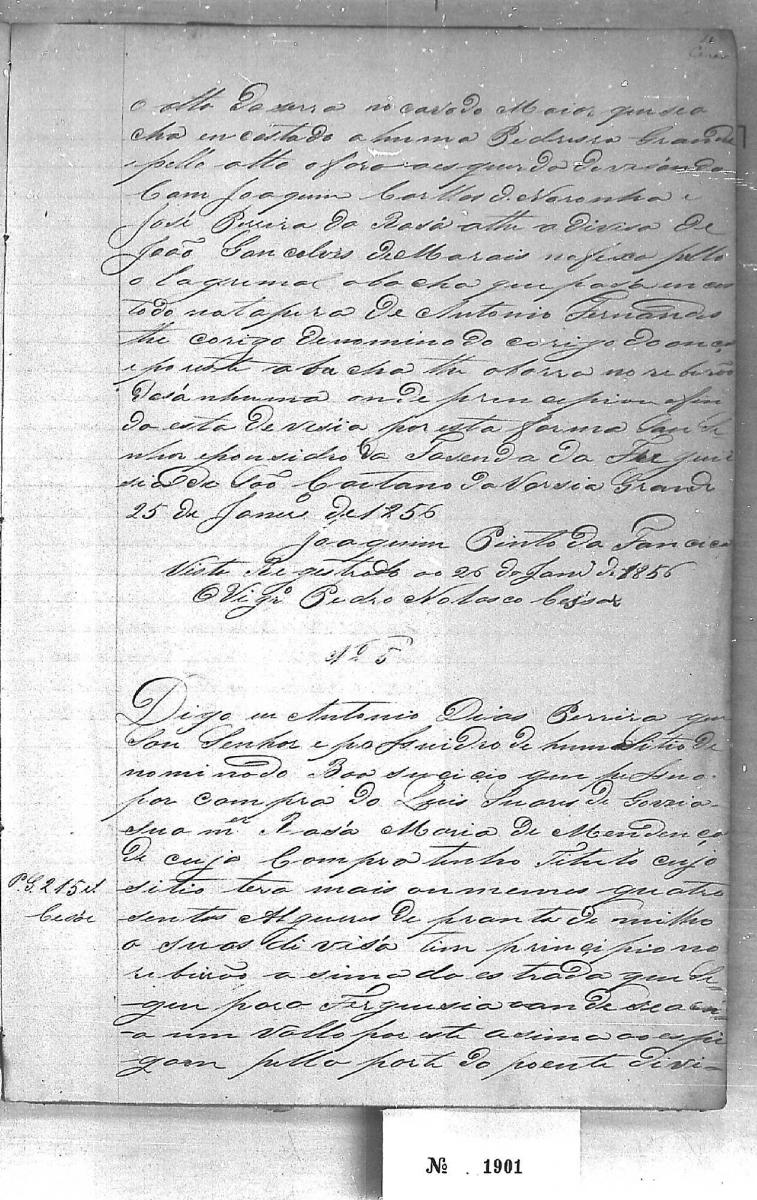 o alto da serra no cavodo Maior que sea
cha encostado a huma Pedrera Grande
e pello alto a fora a esquerda devisando
Com Joaquim Carllos de Noronha e
José Pereira da Rosa athe a divisa de
João Goncalves de Morais no feixo pello
o lagrimal abacha que pasa encos
todo na tapera de Antonio Fernandes
the corigo denominodo corigo do
e por este abacha the a barra no reberão
onde principiou a fin
do esta devesia por esta forma sou Se
nhor e pousidro da Fasenda da Fregue
sia de São Caetano da Varsia Grande
25 de Janro de 1256
Joaquim Pinto da Fonceca
Visto Regestrado ao 26 de Janr de 1856
O Vigro Pedro Nolasco Cesar
No 5
Digo eu Antonio Dias Perreira que
Sou Senhor e possuidro de hum Sitio de
nominodo Boa sucicio que pesuo
por compra do Luis Suares de
sua mer Rosá Maria de Mendonça
de cuja Compra tinho Titulo cujo
sitio tera mais ou menos quatro
sentos Alqueres de pranta de milho
o suas divisá tem principio no
reberão asima da estrada que Se
gue para Freguesia
a um vallo por este asima ao espi
gam pello parte do poente divi-
P.G. 215 rs
Cesar
No. 1901